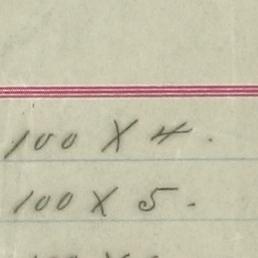 100 X 4.
100 X 5.